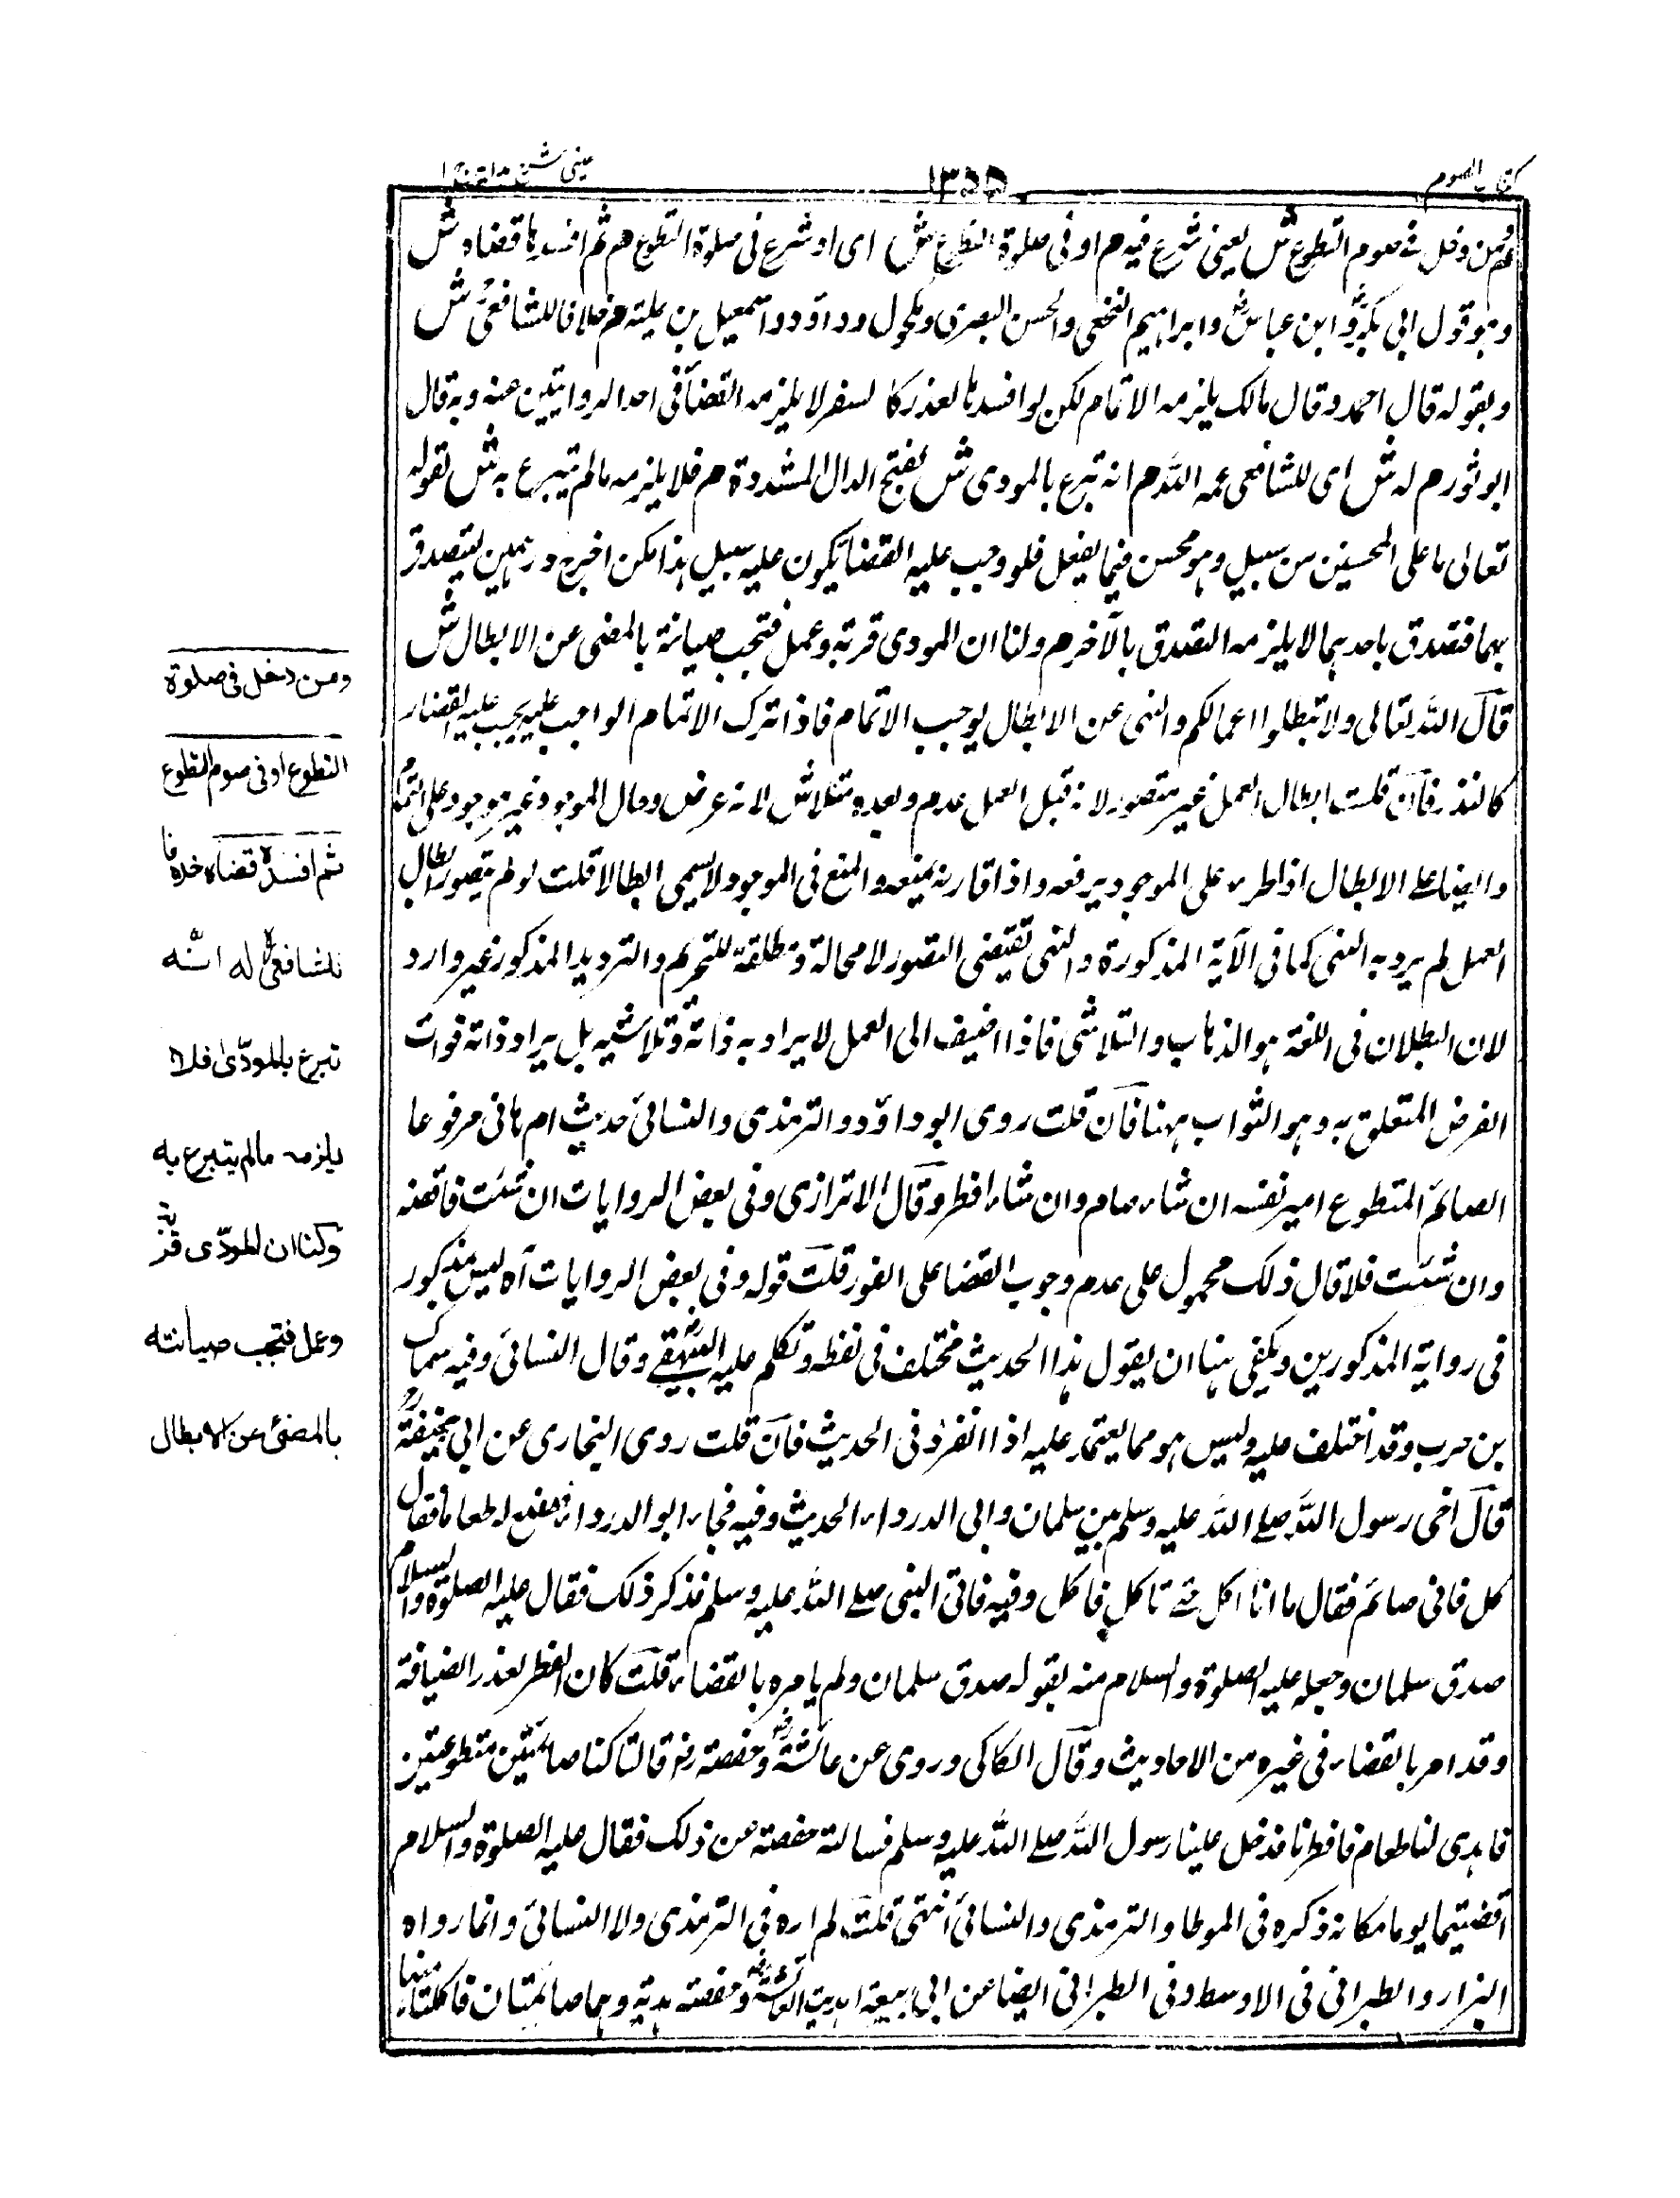 كتاب الصوم
١٣٥٥
عينى شرح هداية
م ومن دخل فى صوم التطوع ش يعنى شرع فيه م او فى صلوة التطوع ش اى او شرع فى صلوة التطوع م ثم افسدها قضاه ش
وهو قول ابى بكرؓ وابن عباسؓ وابراهيم النخعى والحسن البصرى ومكحول وداؤد واسمعيل بن علية م خلافا للشافعىؒ ش
وبقوله قال احمد وقال مالك يلزمه الاتمام لكن لو افسدها لعذر كالسفر لا يلزمه القضاء فى احد الروايتين عنه وبه قال
ابو ثور م له ش اى للشافعى رحمه الله م انه تبرع بالمودى ش بفتح الدال المشددة م فلا يلزمه مالم يتبرع به ش لقوله
تعالى ما على المحسنين من سبيل وهو محسن فيما يفعل فلو وجب عليه القضا يكون عليه سبيل هذا كمن اخرج درهمين ليتصدق
بهما فتصدق باحدهما لا يلزمه التصدق بالآخر م ولنا ان المودى قربة وعمل فتجب صيانته بالمضى عن الابطال ش
قال الله تعالى ولا تبطلوا اعمالكم والنهى عن الابطال يوجب الاتمام فاذا ترك الاتمام الواجب عليه يجب عليه القضاء
كالنذر فان قلت ابطال العمل غير متصور لانه قبل العمل عدم وبعده متلاش لانه عرض وحال الموجود غير موجود على التمام
وايضا على الابطال اذا طرء على الموجود يرفعه واذا قارنه يمنعه والمنع فى الموجود لا يسمى ابطالا قلت لو لم يتصور ابطال
العمل لم يرد به النهى كما فى الآية المذكورة والنهى يقتضى التصور لا محالة ومطلقه للتحريم والترديد المذكور غير وارد
لان البطلان فى اللغة هو الذهاب والتلاشى فاذا اضيف الى العمل لا يراد به ذاته وتلاشيه بل يراد ذاته فوات
الغرض المتعلق به وهو الثواب ههنا فان قلت روى ابو داؤد والترمذى والنسائى حديث ام هانى مرفوعا
الصائم المتطوع امير نفسه ان شاء صام وان شاء افطر وقال الاترازى وفى بعض الروايات ان شئت فاقضه
وان شئت فلا قال ذلك محمول على عدم وجوب القضا على الفور قلت قوله وفى بعض الروايات آه ليس مذكور
فى رواية المذكورين ويكفى هنا ان يقول هذا الحديث مختلف فى لفظه وتكلم عليه البيهقى وقال النسائى وفيه سماك
بن حرب وقد اختلف عليه وليس هو مما يعتمد عليه اذا انفرد فى الحديث فان قلت روى البخارى عن ابى جحيفةؓ
قال اخى رسول الله صلى الله عليه وسلم بين سلمان وابى الدرداء الحديث وفيه فجاء ابو الدرداء فصنع له طعاما فقال
كل فانى صائم فقال ما انا اكل حتى تاكل فاكل وفيه فاتى النبى صلى الله عليه وسلم فذكر ذلك فقال عليه الصلوة والسلام
صدق سلمان وجعله عليه الصلوة والسلام منه بقوله صدق سلمان ولم يامره بالقضاء قلت كان الفطر لعذر الضيافة
وقد امر بالقضاء فى غيره من الاحاديث وقال الكاكى وروى عن عائشةؓ وحفصةؓ قالتا كنا صائمتين متطوعتين
فاهدى لنا طعام فافطرنا فدخل علينا رسول الله صلى الله عليه وسلم فسالته حفصة عن ذلك فقال عليه الصلوة والسلام
اقضيتما يوما مكانه ذكره فى الموطا والترمذى والنسائى انتهى قلت لم اره فى الترمذى ولا النسائى وانما رواه
البزار والطبرانى فى الاوسط وفى الطبرانى ايضا عن ابى اهديت لعائشةؓ وحفصة هدية وهما صائمتان فاكلتا منها
ومن دخل فى صلوة
التطوع او فى صوم التطوع
ثم افسده قضاه خلافا
للشافعىؒ له انّه
تبرع بالمودّى فلا
يلزمه مالم يتبرع به
ولنا ان المودّى قربة
وعمل فتجب صيانته
بالمضىّ عن الابطال